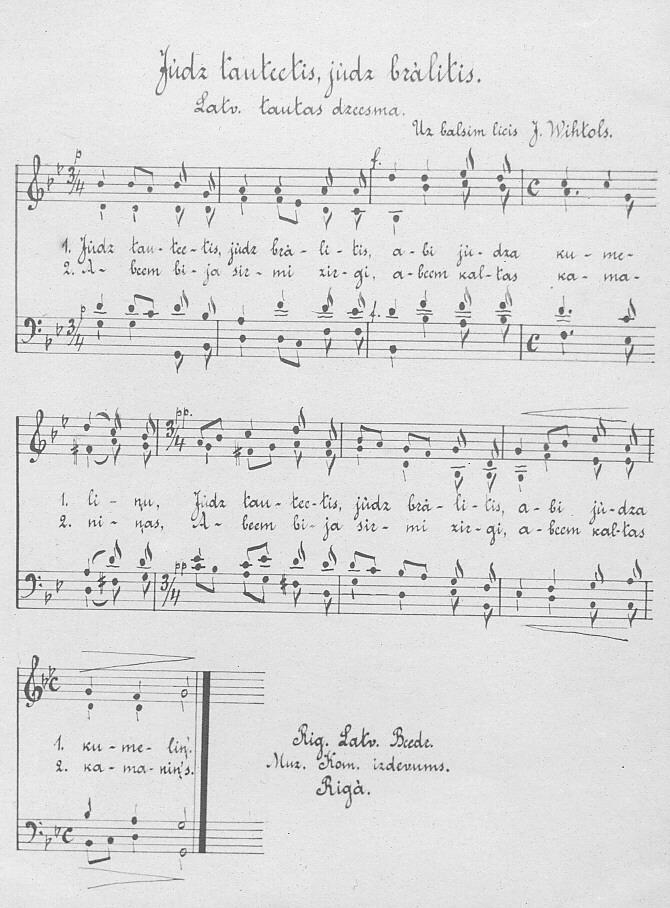 Jùdz tauteetis, jùdz bràlitis.
Latv. tautas dzeesma.
Uz balsim licis J. Wihtols.
p
f.
1. Jùdz tau-tee-tis, jùdz brà-li-tis, a-bi jù-dza ku-me-
2. A-beem bi-ja sir-mi zir-gi, a-beem kal-tas ka-ma-
p
f.
pp.
1. li-ņu, Jùdz tau-tee-tis, jùdz brà-li-tis, a-bi jù-dza
2. ni-ņas, A-beem bi-ja sir-mi zir-gi, a-beem kal-tas
pp.
1. ku-me-liņ'.
2. ka-ma-niņ's.
Rig. Latv. Beedr.
Muz. Kom. izdevums.
Rigà.